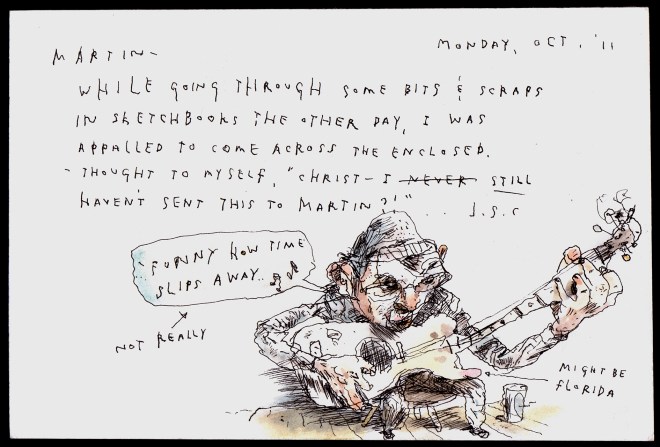 MONDAY, OCT. '11
MARTIN-
WHILE GOING THROUGH SOME BITS & SCRAPS
IN SKETCHBOOKS THE OTHER DAY, I WAS
APPALLED TO COME ACROSS THE ENCLOSED.
- THOUGHT TO MYSELF, "CHRIST- I NEVER STILL
HAVEN'T SENT THIS TO MARTIN?!" . . . J.S.C
FUNNY HOW TIME
SLIPS AWAY..
NOT REALLY
MIGHT BE
FLORIDA